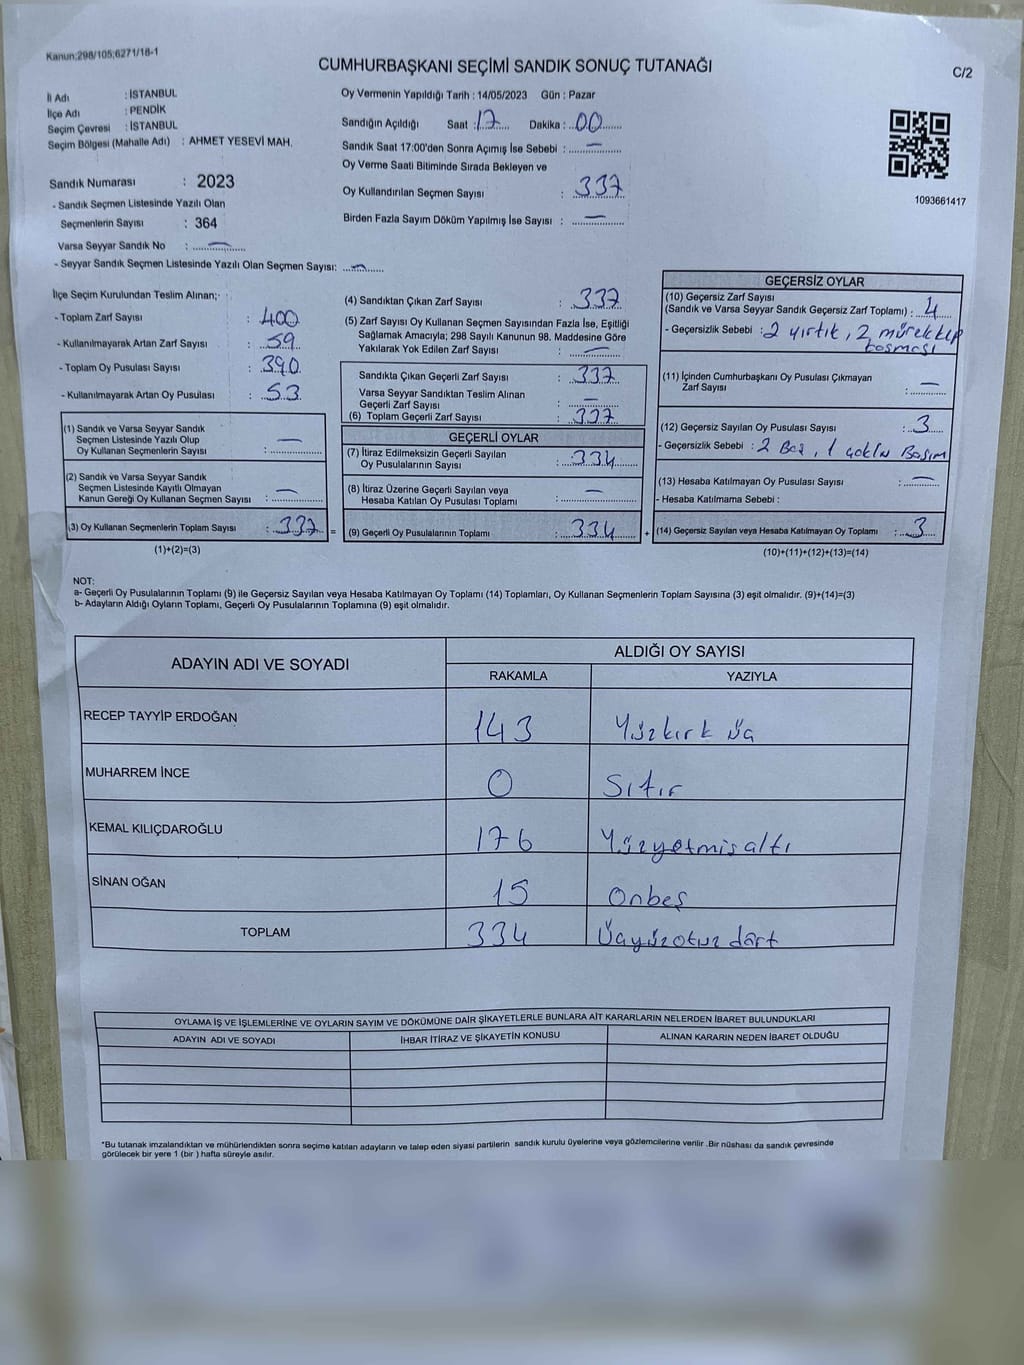 Kanun:298/105;6271/18-1
CUMHURBAŞKANI SEÇİMİ SANDIK SONUÇ TUTANAĞI
C/2
İl Adı : İSTANBUL
İlçe Adı : PENDİK
Seçim Çevresi : İSTANBUL
Seçim Bölgesi (Mahalle Adı) : AHMET YESEVİ MAH.
Oy Vermenin Yapıldığı Tarih : 14/05/2023 Gün : Pazar
Sandığın Açıldığı Saat : 17 Dakika : 00
Sandık Saat 17:00'den Sonra Açımış İse Sebebi : —
Oy Verme Saati Bitiminde Sırada Bekleyen ve
Oy Kullandırılan Seçmen Sayısı : 337
Birden Fazla Sayım Döküm Yapılmış İse Sayısı : —
1093661417
Sandık Numarası : 2023
- Sandık Seçmen Listesinde Yazılı Olan
Seçmenlerin Sayısı : 364
Varsa Seyyar Sandık No : —
- Seyyar Sandık Seçmen Listesinde Yazılı Olan Seçmen Sayısı: —
İlçe Seçim Kurulundan Teslim Alınan;
- Toplam Zarf Sayısı : 400
- Kullanılmayarak Artan Zarf Sayısı : 59
- Toplam Oy Pusulası Sayısı : 390
- Kullanılmayarak Artan Oy Pusulası : 53
(1) Sandık ve Varsa Seyyar Sandık
Seçmen Listesinde Yazılı Olup
Oy Kullanan Seçmenlerin Sayısı : —
(2) Sandık ve Varsa Seyyar Sandık
Seçmen Listesinde Kayıtlı Olmayan
Kanun Gereği Oy Kullanan Seçmen Sayısı : —
(3) Oy Kullanan Seçmenlerin Toplam Sayısı : 337 =
(1)+(2)=(3)
(4) Sandıktan Çıkan Zarf Sayısı : 337
(5) Zarf Sayısı Oy Kullanan Seçmen Sayısından Fazla İse, Eşitliği
Sağlamak Amacıyla; 298 Sayılı Kanunun 98. Maddesine Göre
Yakılarak Yok Edilen Zarf Sayısı : —
Sandıkta Çıkan Geçerli Zarf Sayısı : 337
Varsa Seyyar Sandıktan Teslim Alınan
Geçerli Zarf Sayısı : —
(6) Toplam Geçerli Zarf Sayısı : 337
GEÇERLİ OYLAR
(7) İtiraz Edilmeksizin Geçerli Sayılan
Oy Pusulalarının Sayısı : 334
(8) İtiraz Üzerine Geçerli Sayılan veya
Hesaba Katılan Oy Pusulası Toplamı : —
(9) Geçerli Oy Pusulalarının Toplamı : 334 +
GEÇERSİZ OYLAR
(10) Geçersiz Zarf Sayısı
(Sandık ve Varsa Seyyar Sandık Geçersiz Zarf Toplamı) : 4
- Geçersizlik Sebebi : 2 yırtık, 2 mürekkep
basması
(11) İçinden Cumhurbaşkanı Oy Pusulası Çıkmayan
Zarf Sayısı : —
(12) Geçersiz Sayılan Oy Pusulası Sayısı : 3
- Geçersizlik Sebebi : 2 Boş, 1 çoklu Basım
(13) Hesaba Katılmayan Oy Pusula Sayısı : —
- Hesaba Katılmama Sebebi :
(14) Geçersiz Sayılan veya Hesaba Katılmayan Oy Toplamı : 3
(10)+(11)+(12)+(13)=(14)
NOT:
a- Geçerli Oy Pusulalarının Toplamı (9) ile Geçersiz Sayılan veya Hesaba Katılmayan Oy Toplamı (14) Toplamları, Oy Kullanan Seçmenlerin Toplam Sayısına (3) eşit olmalıdır. (9)+(14)=(3)
b- Adayların Aldığı Oyların Toplamı, Geçerli Oy Pusulalarının Toplamına (9) eşit olmalıdır.
ADAYIN ADI VE SOYADI
ALDIĞI OY SAYISI
RAKAMLA YAZIYLA
RECEP TAYYİP ERDOĞAN 143 Yüzkırk üç
MUHARREM İNCE 0 Sıfır
KEMAL KILIÇDAROĞLU 176 Yüzyetmiş altı
SİNAN OĞAN 15 Onbeş
TOPLAM 334 Üçyüzotuz dört
OYLAMA İŞ VE İŞLEMLERİNE VE OYLARIN SAYIM VE DÖKÜMÜNE DAİR ŞİKAYETLERLE BUNLARA AİT KARARLARIN NELERDEN İBARET BULUNDUKLARI
ADAYIN ADI VE SOYADI İHBAR İTİRAZ VE ŞİKAYETİN KONUSU ALINAN KARARIN NEDEN İBARET OLDUĞU
*Bu tutanak imzalandıktan ve mühürlendikten sonra seçime katılan adayların ve talep eden siyasi partilerin sandık kurulu üyelerine veya gözlemcilerine verilir .Bir nüshası da sandık çevresinde
görülecek bir yere 1 (bir ) hafta süreyle asılır.